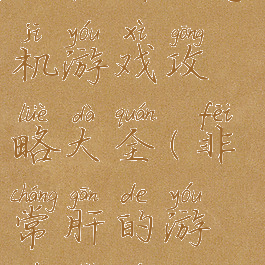 jī yóu xì gōng
机游戏攻
lüè dà quán fēi
略大全(非
cháng gān de yóu
常肝的游